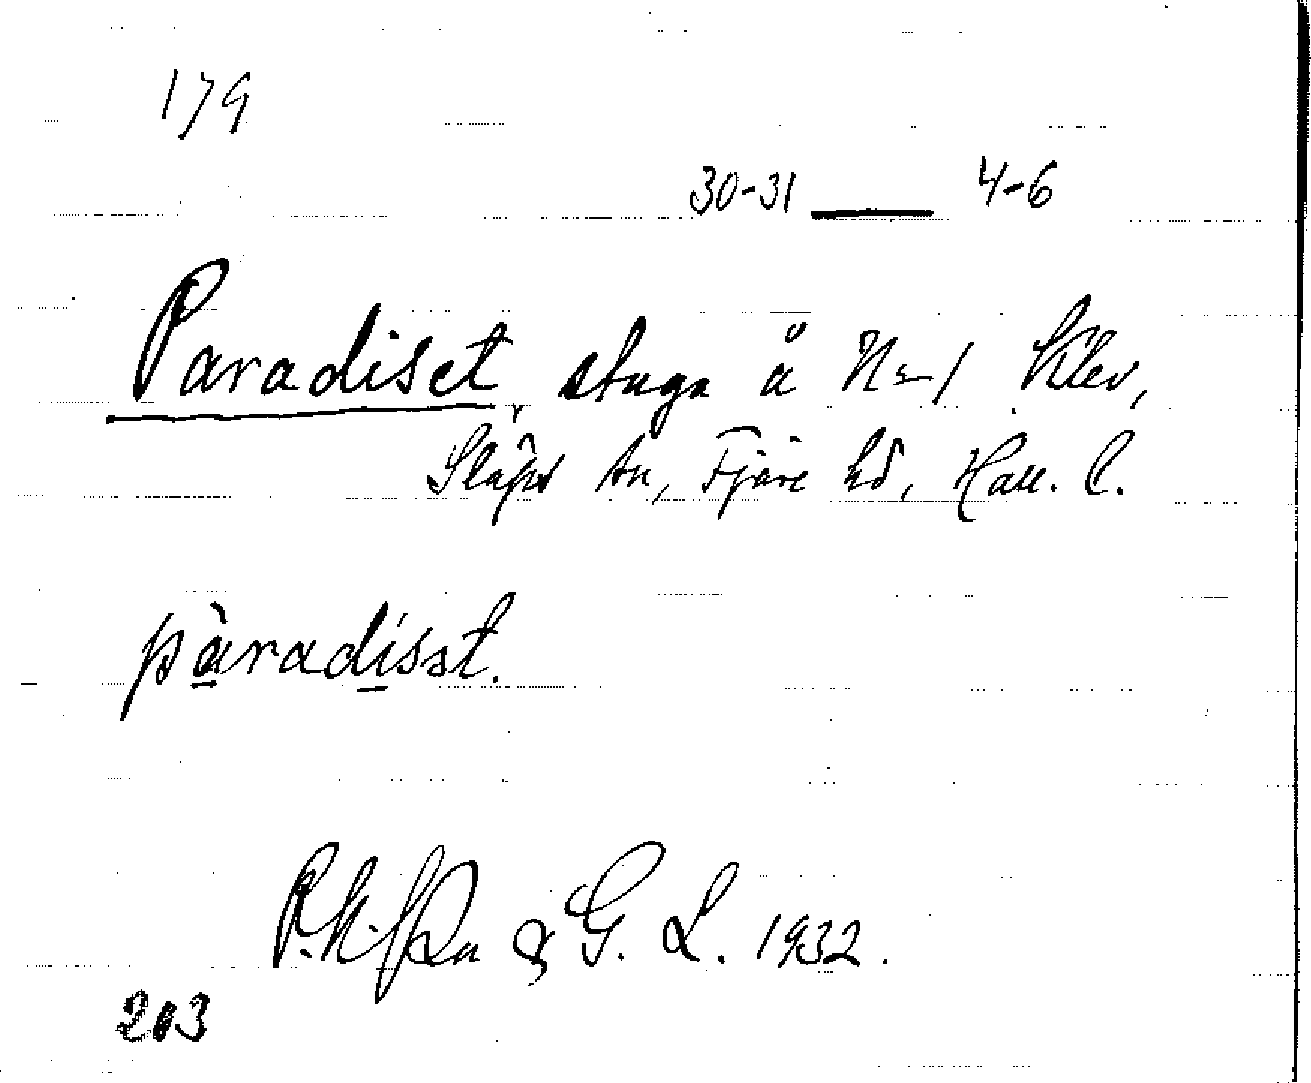 179
30-31 — 4-6
Paradiset, stuga å N:o 1 Klev,
Släps sn, Fjäre hd, Hall. l.
pàradísst.
& G. L. 1932.
203